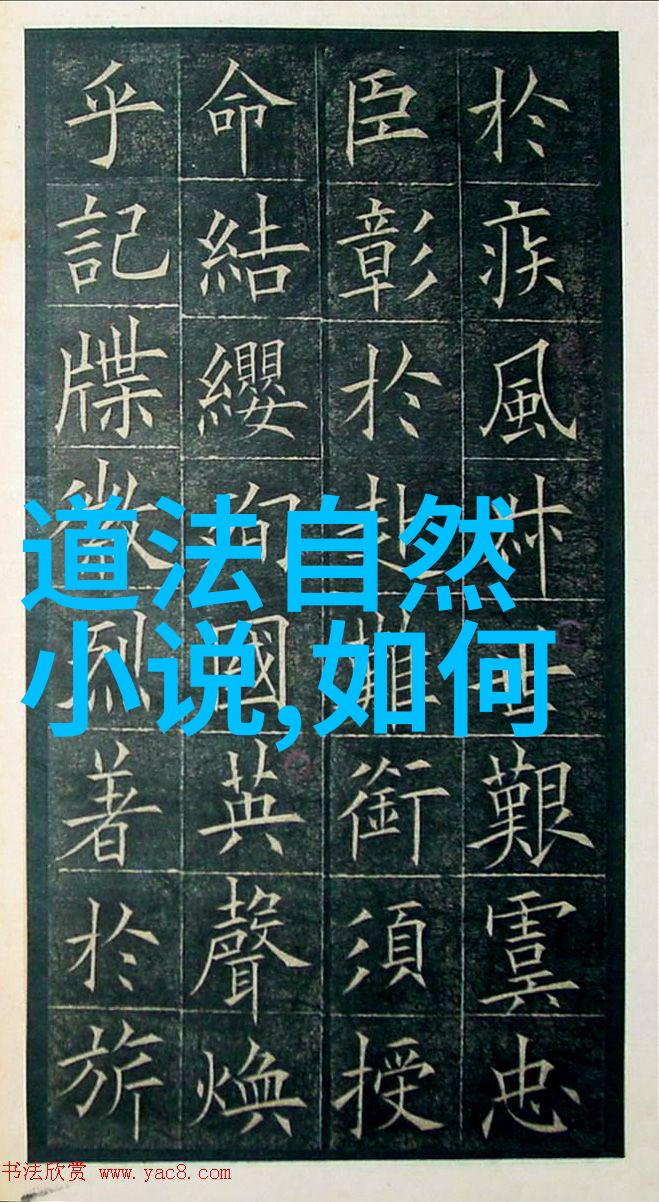 於疾風叔世艱虞忠
臣彰於赴難銜須授
命結纓國英聲煥
乎記牒徽烈著於旂
道法自然
小说,如何
书法欣赏 www.yac8.com